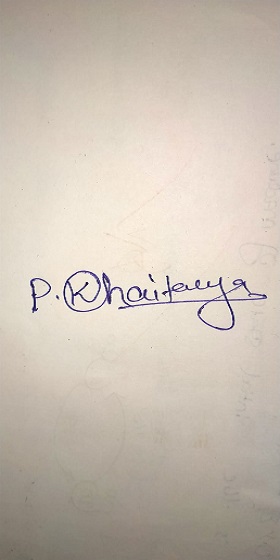 P. Khaitanya